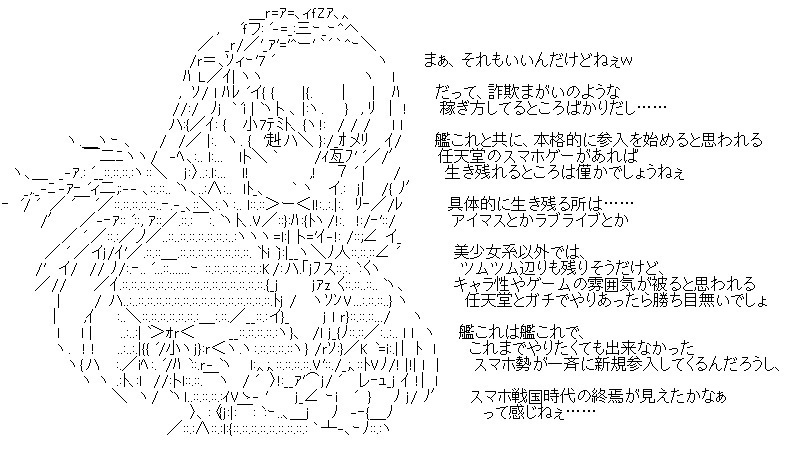 まぁ、それもいいんだけどねぇｗ
だって、詐欺まがいのような
稼ぎ方してるところばかりだし……
艦これと共に、本格的に参入を始めると思われる
任天堂のスマホゲーがあれば
生き残れるところは僅かでしょうねぇ
具体的に生き残る所は……
アイマスとかラブライブとか
美少女系以外では、
ツムツム辺りも残りそうだけど、
キャラ性やゲームの雰囲気が被ると思われる
任天堂とガチでやりあったら勝ち目無いでしょ
艦これは艦これで、
これまでやりたくても出来なかった
スマホ勢が一斉に新規参入してくるんだろうし、
スマホ戦国時代の終焉が見えたかなぁ
って感じねぇ……